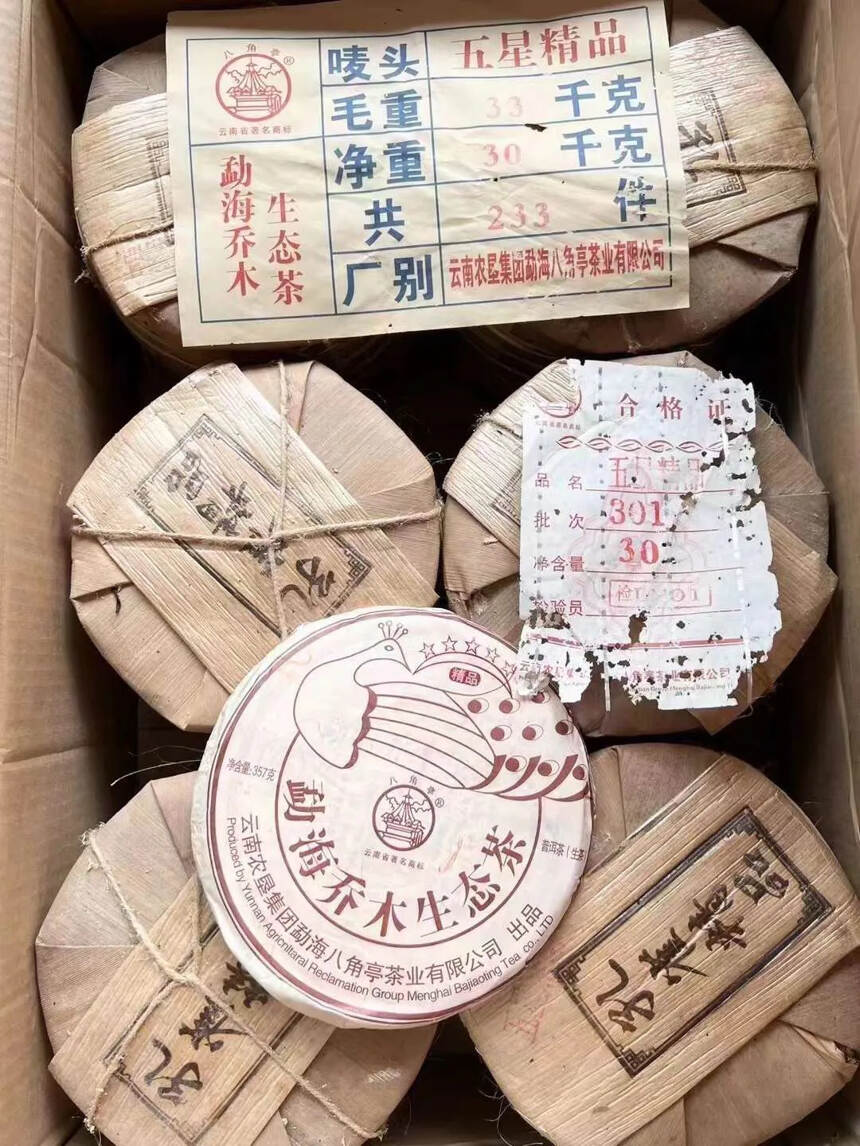 八角亭®
云南省著名商标
勐海乔木
生态茶
唛头 五星精品
毛重 33 千克
净重 30 千克
共 233 件
厂别 云南农垦集团勐海八角亭茶业有限公司
孔
合格证
品名 五星精品
批次 301
净含量 30
检验员
孔雀精品
精品
净含量:357克
八角亭®
云南省著名商标
普洱茶(生茶
勐海乔木生态茶
云南农垦集团勐海八角亭茶业有限公司 出品
Produced by Yunnan Agricnltaral Reclamation Group Menghai Bajiaoting Tea co., LTD
孔雀
孔雀精品
五